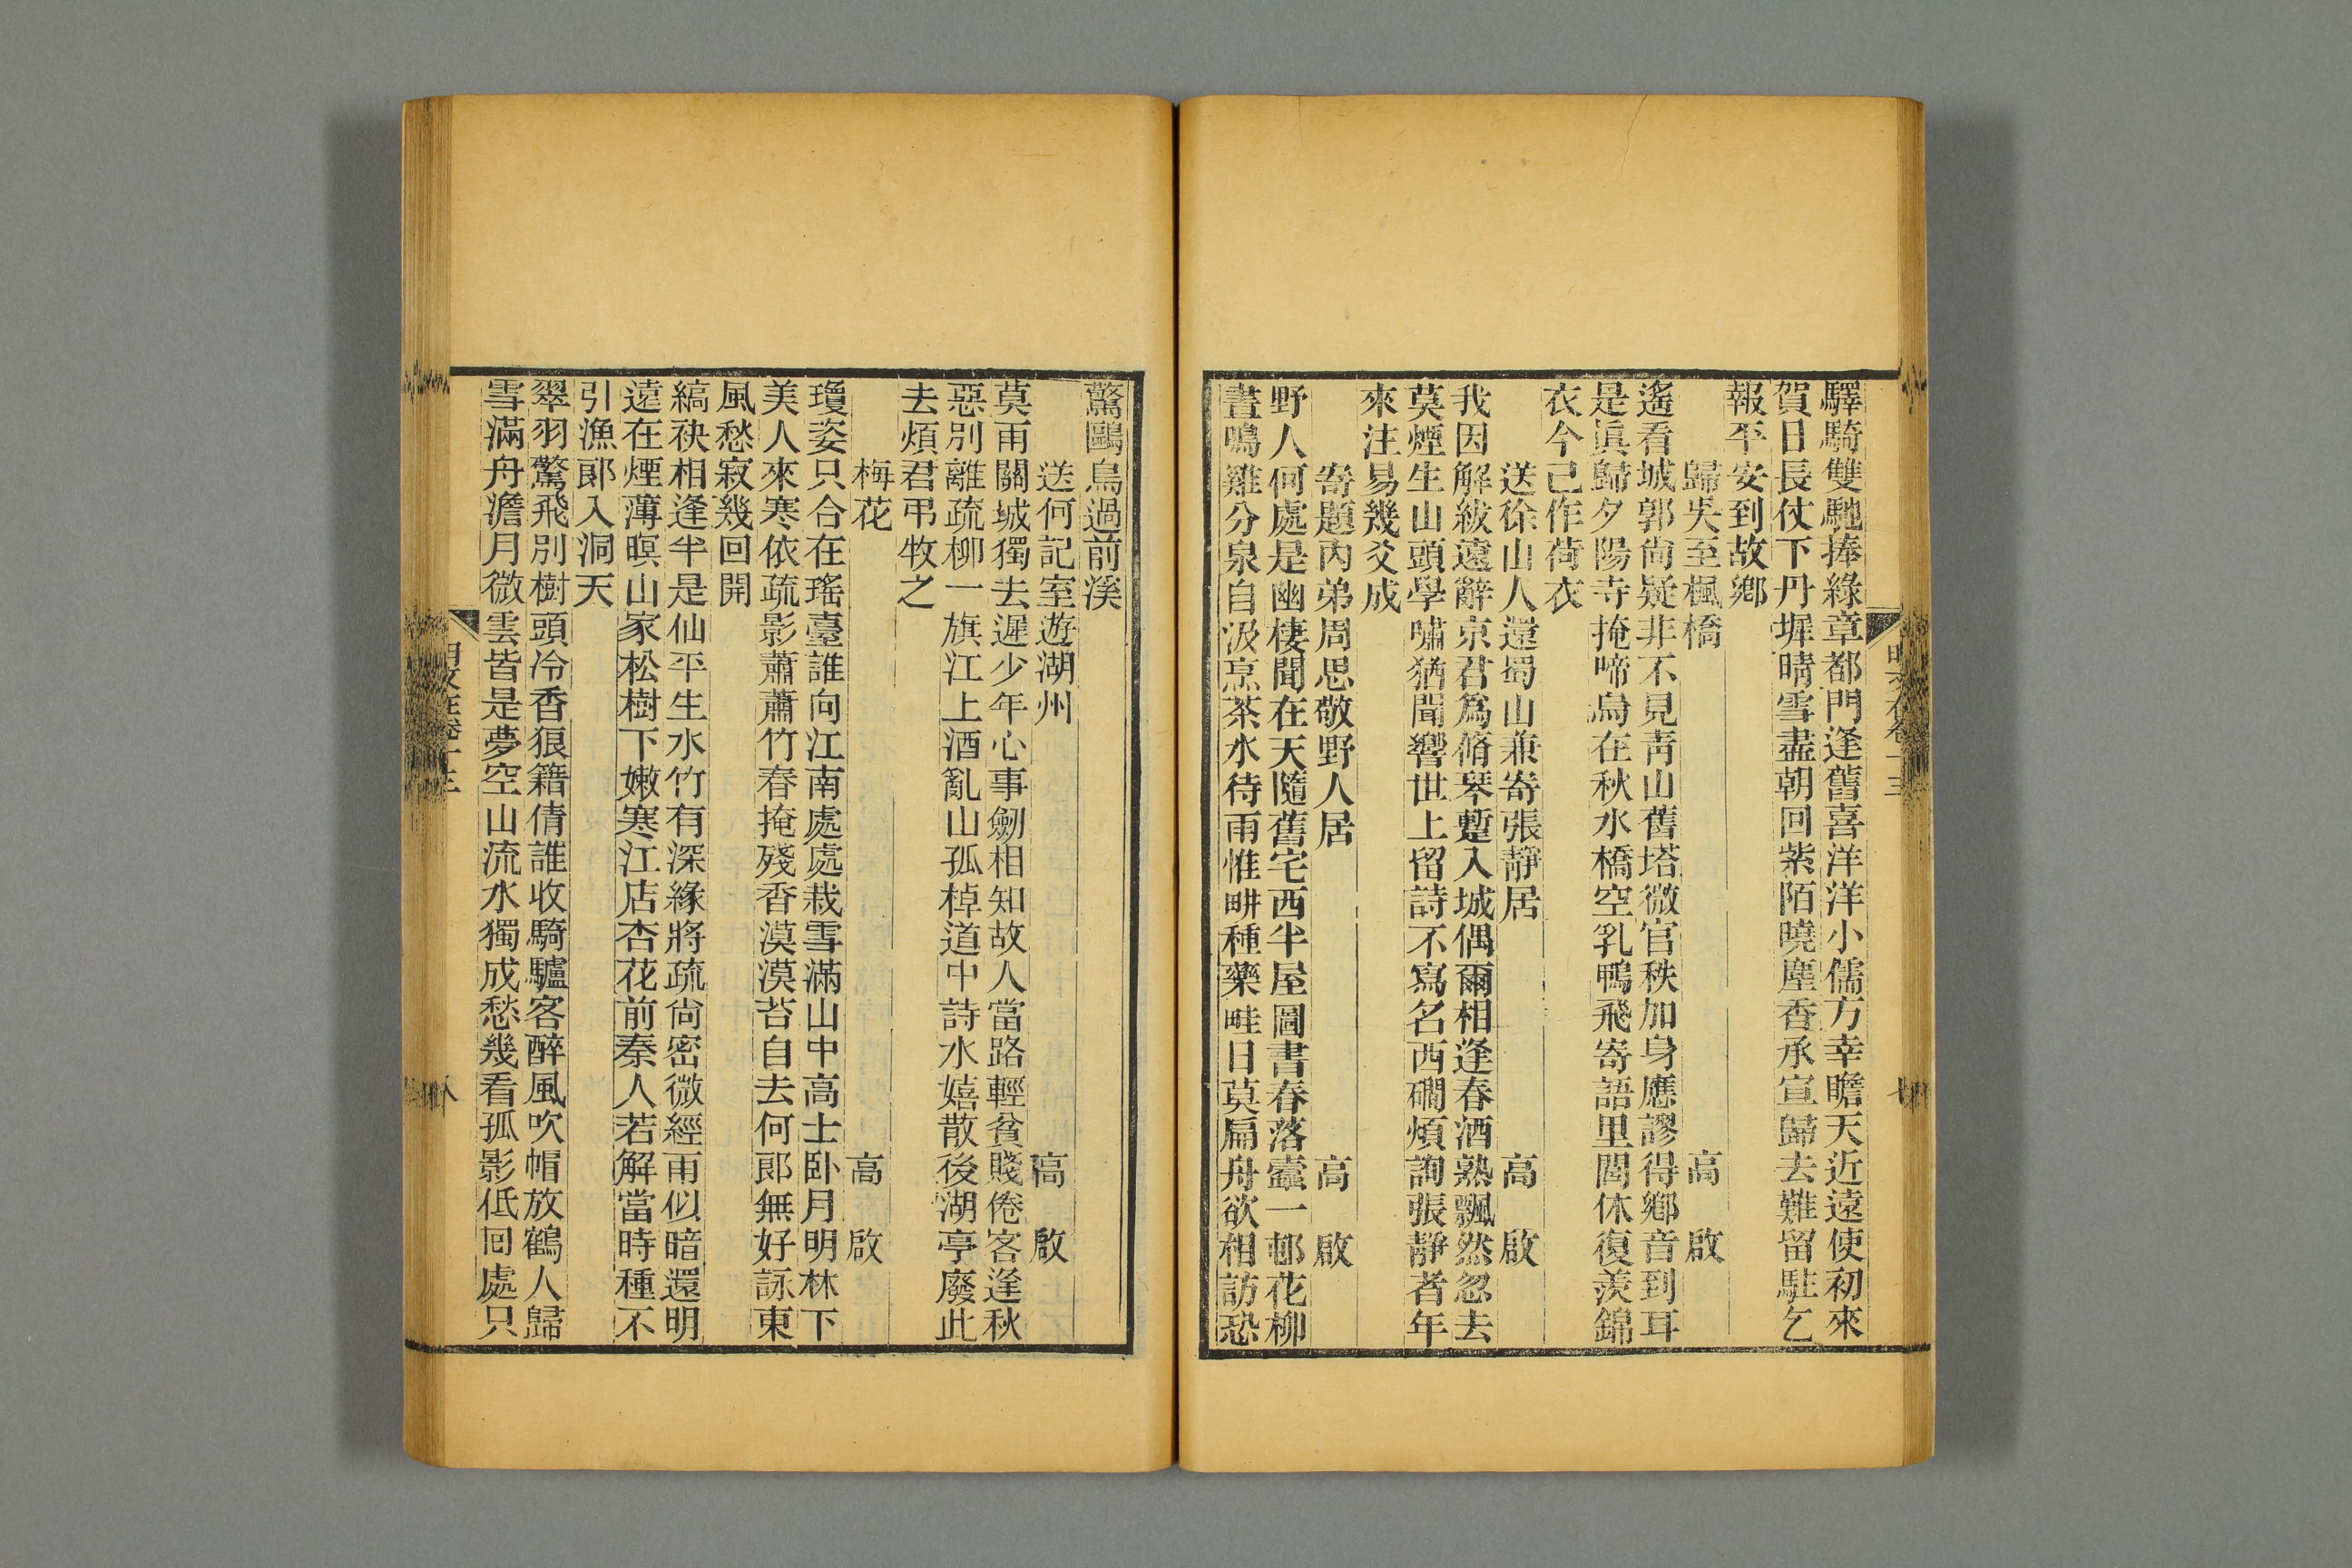 驛騎雙馳捧綠章都門逢舊喜洋洋小儒方幸瞻天近遠使初來
賀日長仗下丹墀晴雪盡朝回紫陌曉塵香承宣歸去難留駐乞
報平安到故鄉
歸吳至楓橋 高 啟
遙看城郭尙疑非不見靑山舊塔微官秩加身應謬得鄉音到耳
是眞歸夕陽寺掩啼烏在秋水橋空乳鴨飛寄語里閭休復羨錦
衣今已作荷衣
送徐山人還蜀山兼寄張靜居 高 啟
我因解紱遠辭京君爲脩琴蹔入城偶爾相逢春酒熟飄然忽去
莫煙生山頭學嘯猶聞響世上留詩不寫名西磵煩詢張靜者年
來注易幾爻成
寄題內弟周思敬野人居 高 啟
野人何處是幽棲聞在天隨舊宅西半屋圖書春落蠹一邨花柳
晝鳴雞分泉自汲烹茶水待雨惟畊種藥畦日莫扁舟欲相訪恐
驚鷗鳥過前溪
送何記室遊湖州 高 啟
莫雨關城獨去遲少年心事劒相知故人當路輕貧賤倦客逢秋
惡別離疏柳一旗江上酒亂山孤棹道中詩水嬉散後湖亭廢此
去煩君弔牧之
梅花 高 啟
瓊姿只合在瑤臺誰向江南處處栽雪滿山中高士卧月明林下
美人來寒依疏影蕭蕭竹春掩殘香漠漠苔自去何郎無好詠東
風愁寂幾回開
縞袂相逢半是仙平生水竹有深緣將疏尙密微經雨似暗還明
遠在煙薄暝山家松樹下嫩寒江店杏花前秦人若解當時種不
引漁郎入洞天
翠羽驚飛別樹頭冷香狼籍倩誰收騎驢客醉風吹帽放鶴人歸
雪滿舟澹月微雲皆是夢空山流水獨成愁幾看孤影低回處只
八